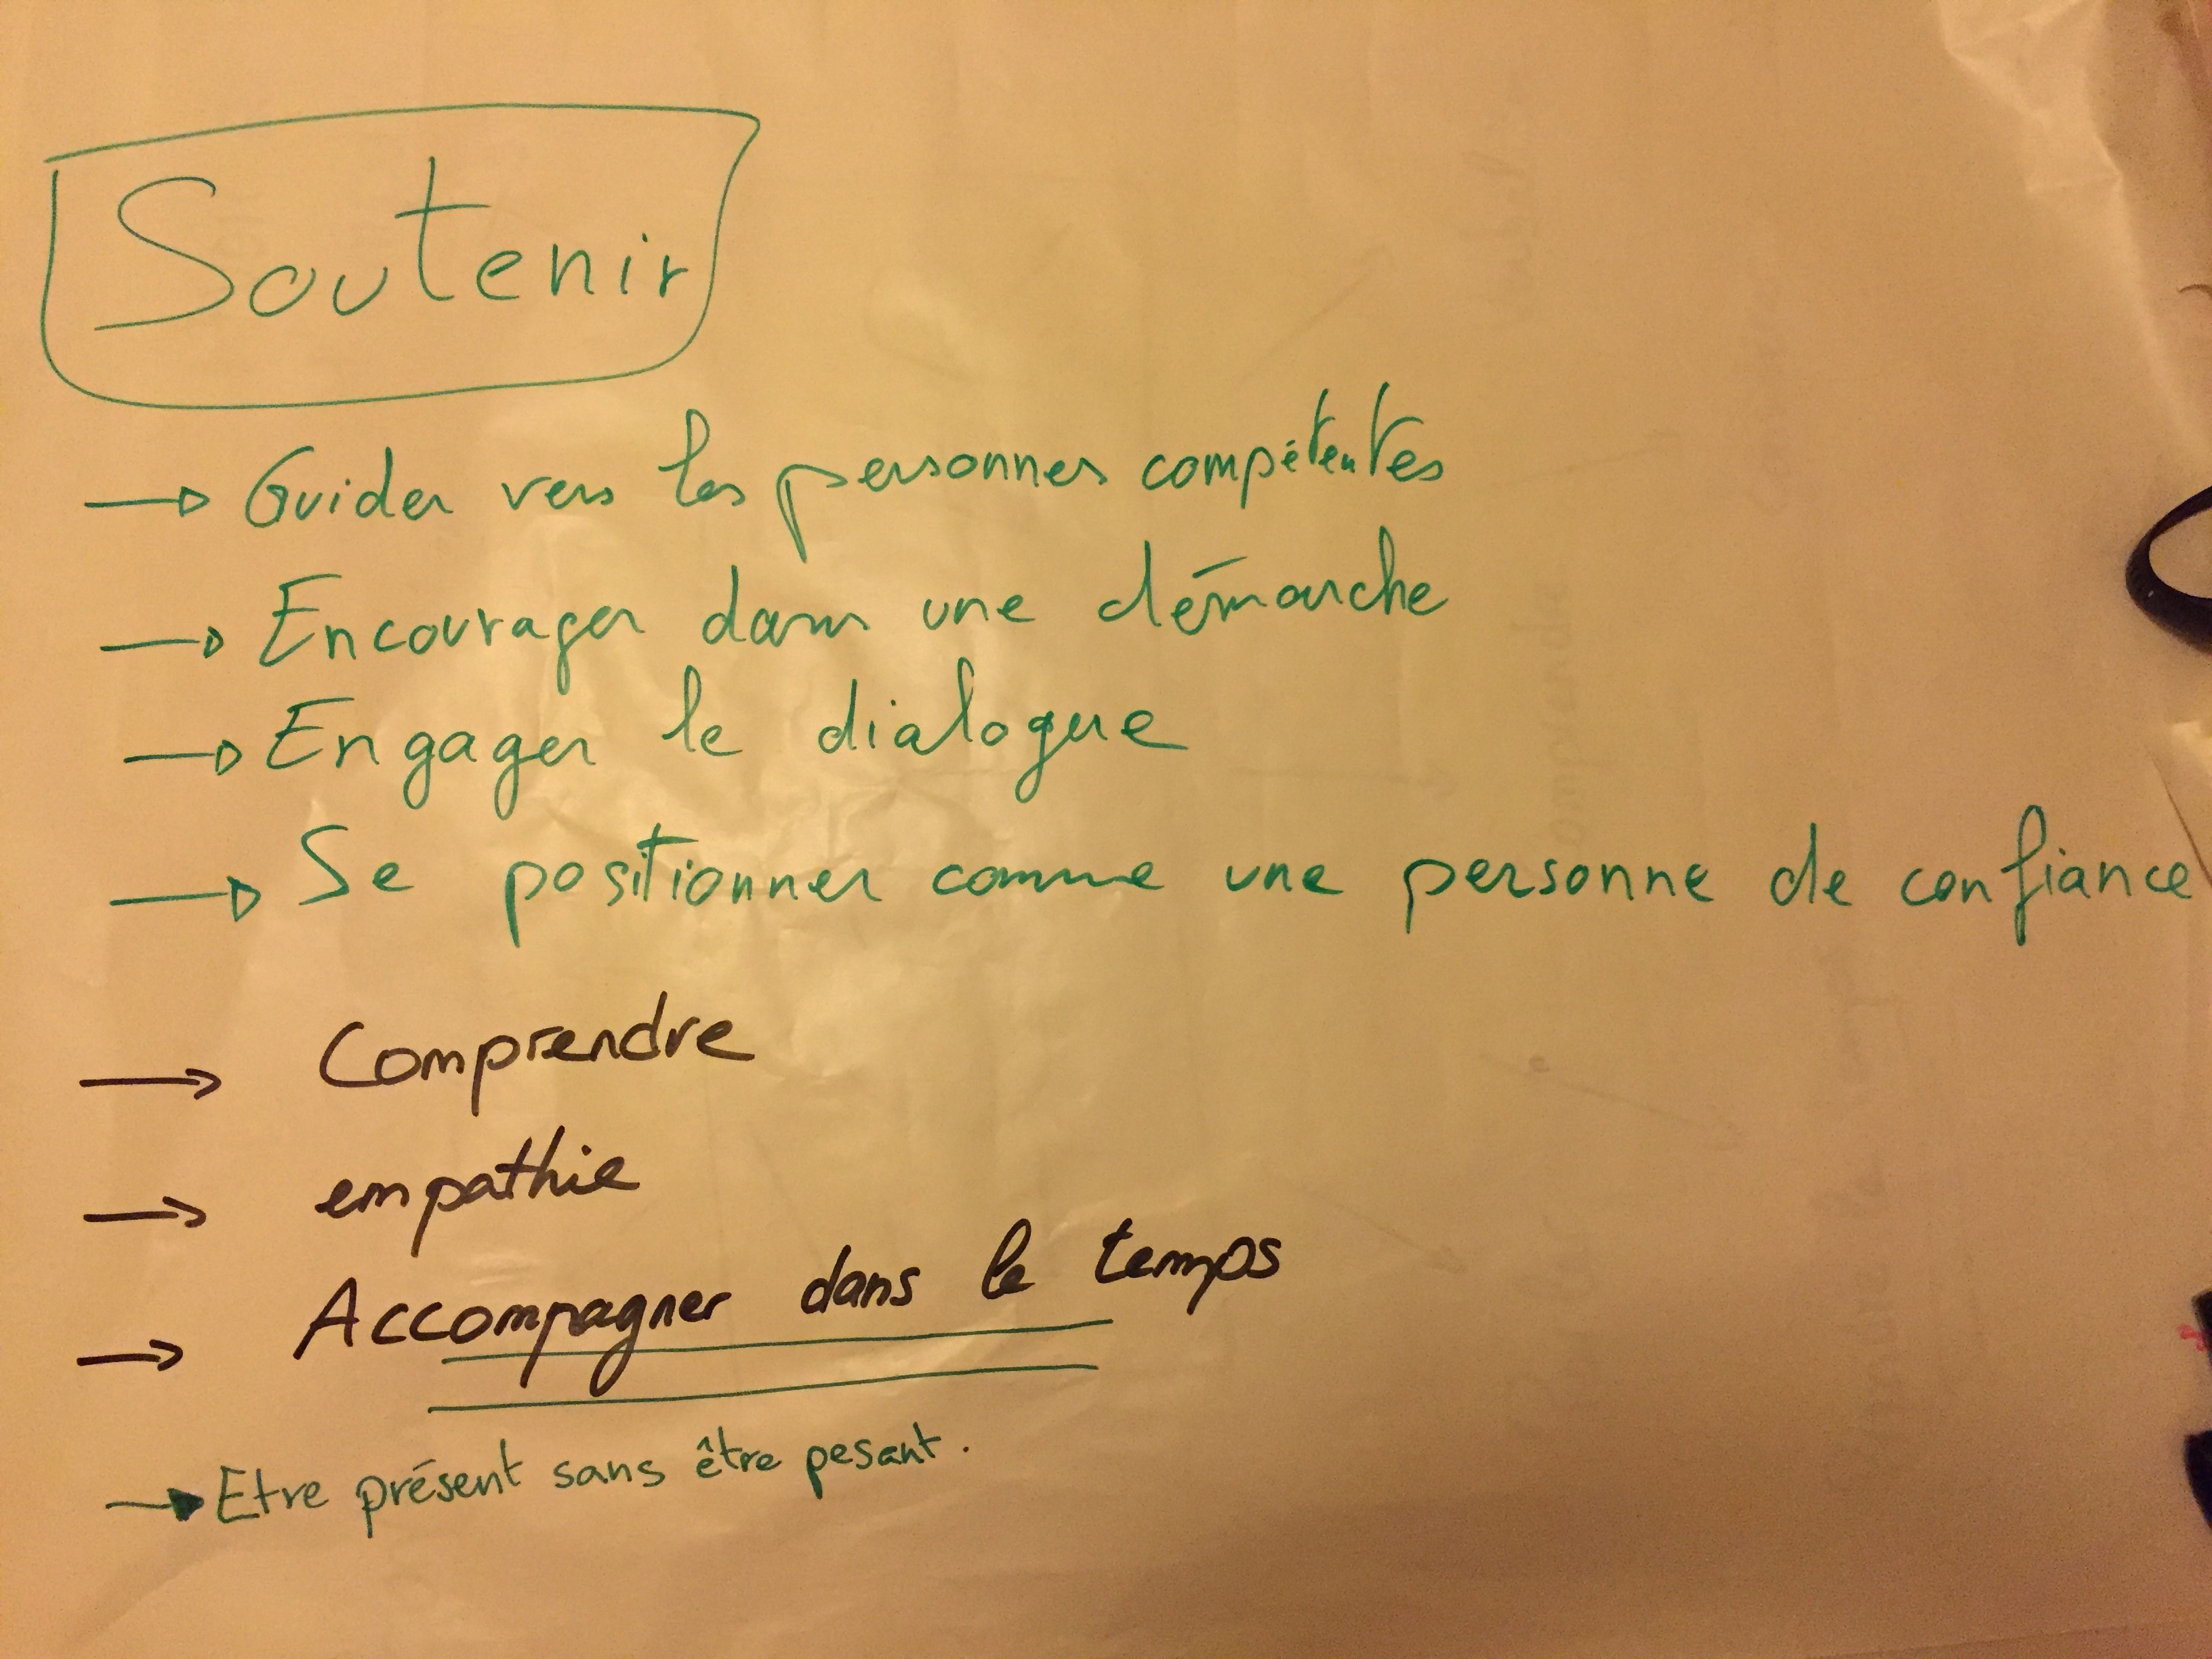 Soutenir
→ Guider vers les personnes compétentes
→ Encourager dans une démarche
→ Engager le dialogue
→ Se positionner comme une personne de confiance
→ Comprendre
→ empathie
→ Accompagner dans le temps
→ Etre présent sans être pesant.